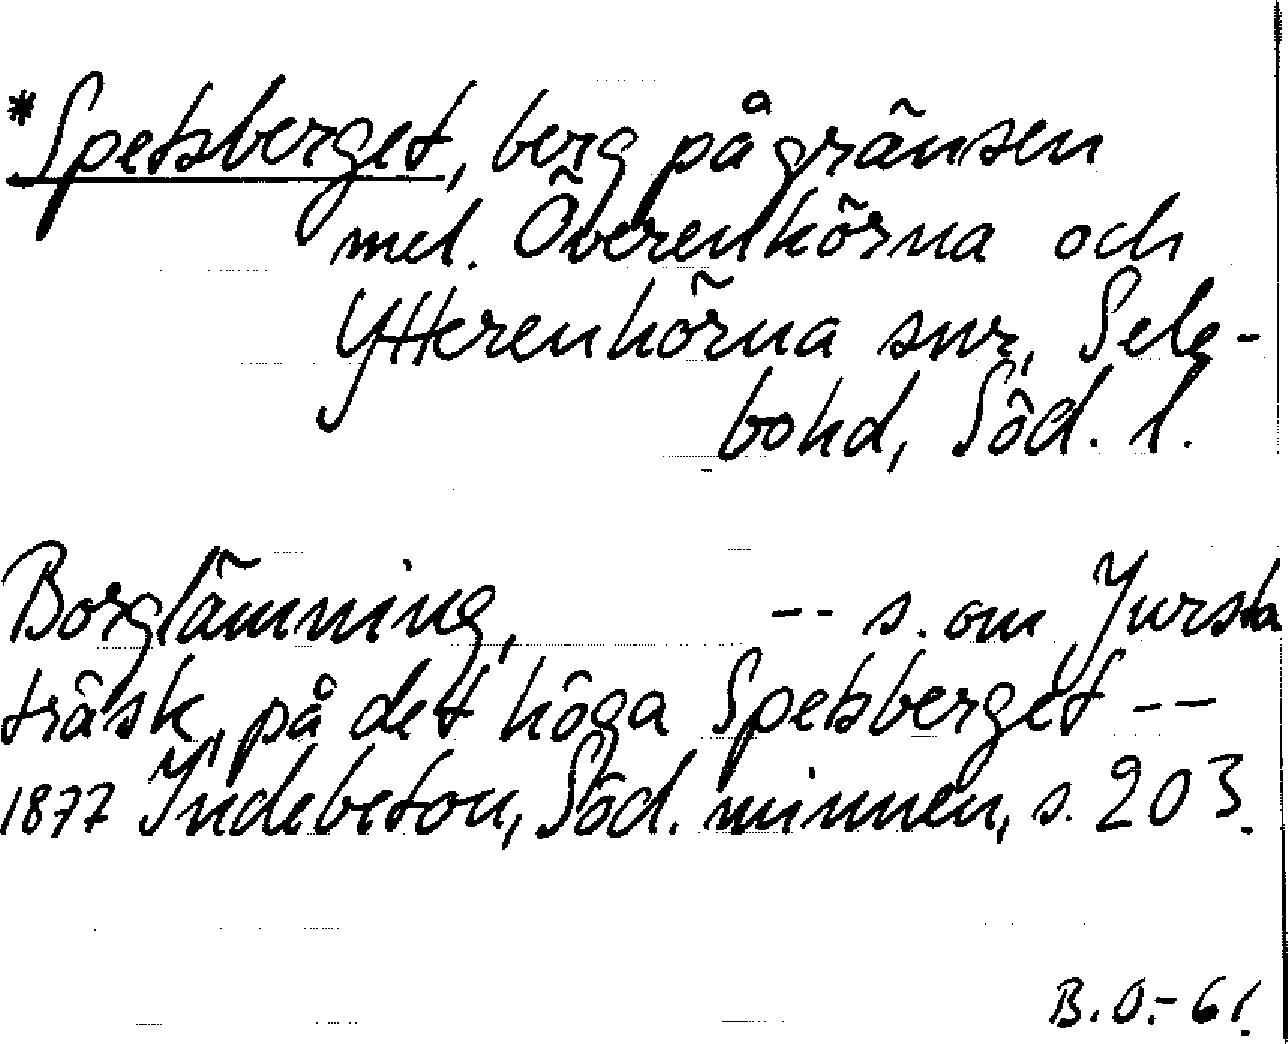 *Spetsberget, berg på gränsen
mel. Överenhörna och
Ytterenhörna snr, Sele-
bohd, Söd. l.
Borglämning, -- s. om Jursta
träsk, på det höga Spetsberget --
1877 Indebetou, Söd. minnen, s. 203.
B.O.-61.